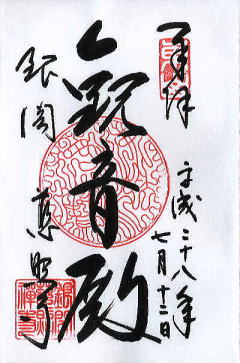 奉拝
平成二十八年
七月十二日
観音殿
銀閣 慈照寺